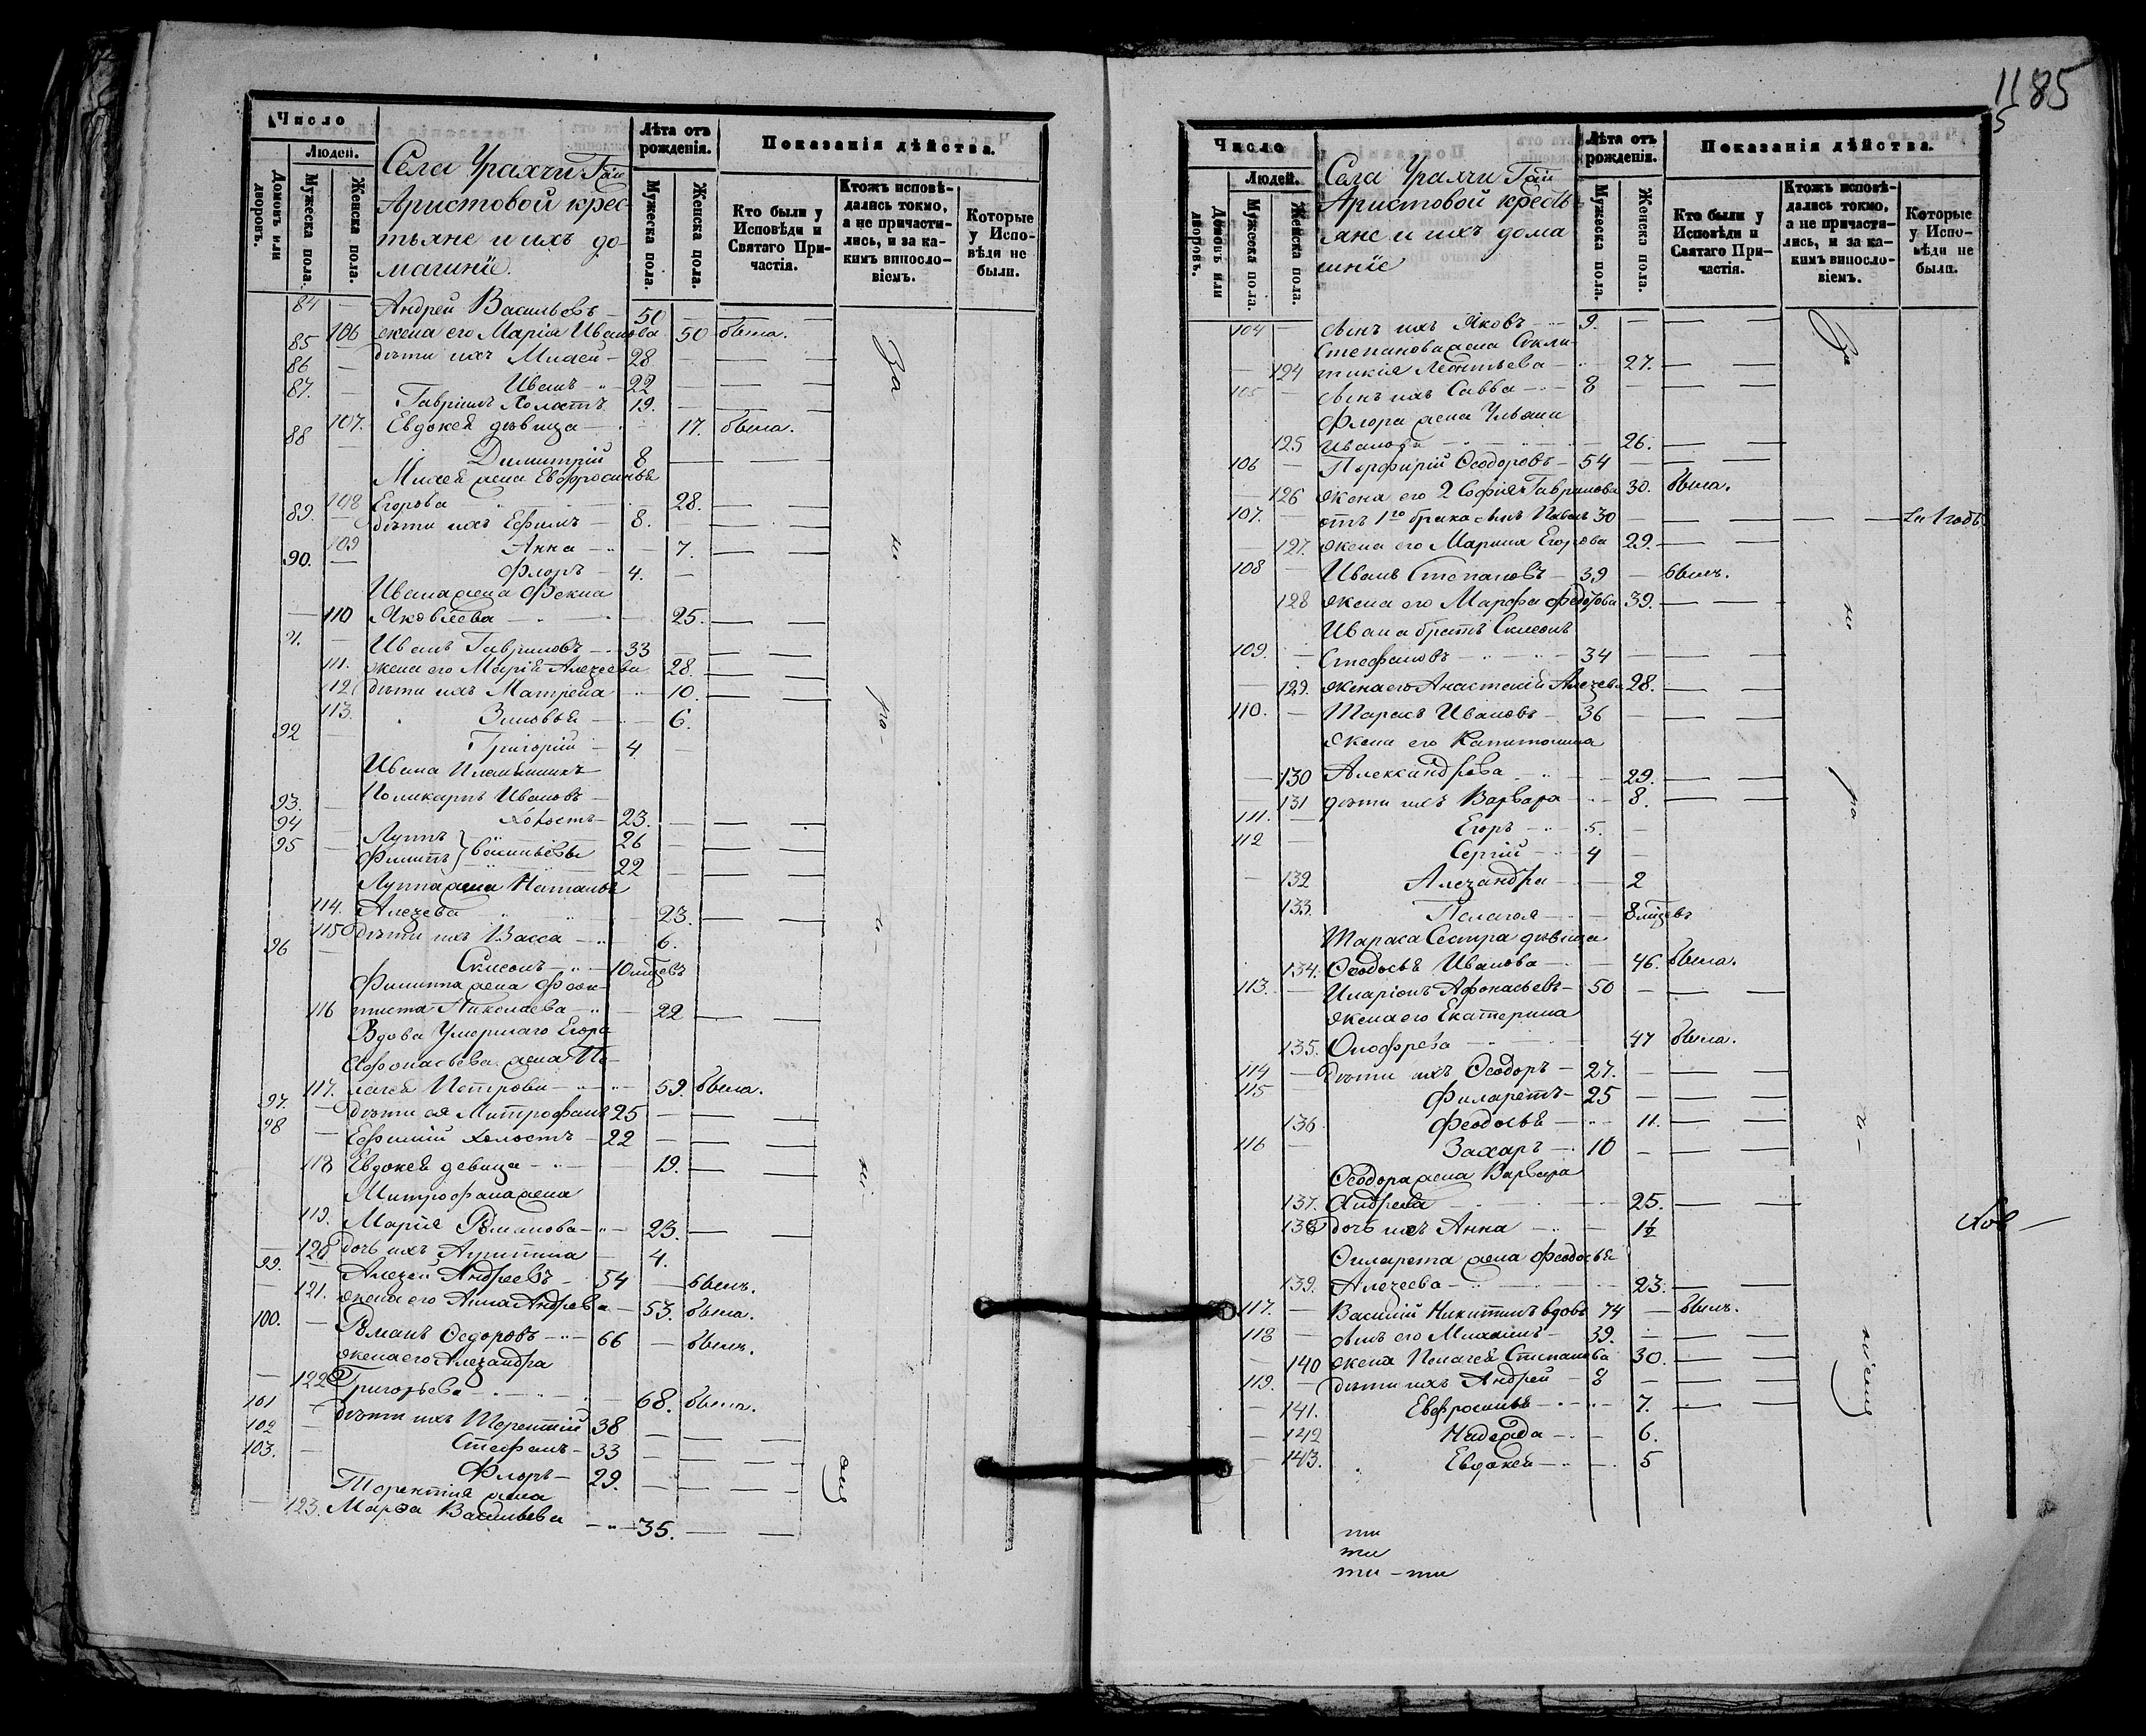 Число
Людей.
Домовъ или дворовъ.
Мужеска пола.
Женска пола.
Села Урахчи Г-жи
Аристовой крес
тьяне и ихъ до
машніе.
Лѣта отъ рожденія.
Мужеска пола.
Женска пола.
Показанія дѣйства.
Кто были у Исповѣди и Святаго Причастія.
Ктожъ исповѣдались токмо, а не причастились, и за какимъ винословіемъ.
Которые у Исповѣди не были.
84 — Андрей Васильевъ — 50
106 жена его Марія Иванова 50 была.
85 — дѣти ихъ Михей — 28
86 — Иванъ 22
87. — Гавріилъ холостъ 19.
107. Евдокея дѣвица — 17. была.
88 — Димитрій 8
Михея жена Евфросинья
108 Егорова 28.
89. — дѣти ихъ Ефимъ — 8.
109 Анна — 7.
90. — Флоръ — 4.
Ивана жена Фекла
110 Яковлева — 25.
91. — Иванъ Гавриловъ — 33
111. жена его Марія Алексеева 28.
112 дѣти ихъ Матрена 10.
113. Зиновья — 6.
92 — Григорій — 4
Ивана племянникъ
93. — Поликарпъ Ивановъ —
холостъ — 23.
94 — Луппъ 26
95 — Филипъ } Васильевы 22
Луппа жена Наталья
114. Алексева 23.
115 дѣти ихъ Васса — 6.
96 — Симеонъ — 10 мѣцевъ
Филиппа жена Феок-
116 тиста Николаева — 22
Вдова Умершаго Егора
Афонасьева жена Пе-
117. лагея Петрова — 59. была.
97. — дѣти ея Митрофанъ 25
98 — Ефимій холостъ — 22
118 Евдокея девица — 19.
Митрофана жена
119. Марія Романова — 23.
120 дочь ихъ Агриппина 4.
99. — Алексей Андреевъ — 54 — былъ.
121. жена его Анна Андреева — 53. была.
100. — Романъ Федоровъ — 66 — былъ.
жена его Александра
122 Григорьева — 68. была.
101 — дѣти ихъ Терентій 38
102 — Стефанъ — 33
103. — Флоръ — 29.
Терентія жена
123. Марфа Васильева — 35.
За
ма
ро-
1185
5
Число
Людей.
Домовъ или дворовъ.
Мужеска пола.
Женска пола.
Села Урахчи Г-жи
Аристовой кресть
яне и ихъ дома
шніе
Лѣта отъ рожденія.
Мужеска пола.
Женска пола.
Показанія дѣйства.
Кто были у Исповѣди и Святаго Причастія.
Ктожъ исповѣдались токмо, а не причастились, и за какимъ винословіемъ.
Которые у Исповѣди не были.
104 — сынъ ихъ Яковъ — 9.
Степанова жена Сикли-
124 тикія Леонтьева — 27.
105 — сынъ ихъ Савва — 8
Флора жена Ульяна
125 Иванова — 26.
106 — Порфирій Ѳеодоровъ — 54
126 жена его 2 София Гаврилова 30. была.
107. — отъ 1го брака сынъ Павелъ 30
127. жена его Марина Егорова 29.
108 — Иванъ Степановъ — 39 — былъ.
128 жена его Марфа Федотова 39.
Ивана братъ Симеонъ
109. — Стефановъ — 34
129. жена его Анастасія Алексева 28.
110. — Тарасъ Ивановъ — 36
жена его Капитолина
130 Александрова — 29.
131 дѣти ихъ Варвара — 8.
111. — Егоръ — 5.
112 Сергій — 4
132 Александра — 2
133. Пелагея — 8 мѣцевъ
Тараса Сестра дѣвица
134. Ѳеодосья Иванова — 46. была.
113. — Иларіонъ Афонасьевъ — 50
жена его Екатерина
135. Онофрева 47 была.
114 — дѣти ихъ Ѳеодоръ — 27.
115 Филаретъ — 25
136 Феодосья — 11.
116 — Захаръ — 10
Ѳеодора жена Варвара
137. Андреева 25.
138 дочь ихъ Анна — 1½
Филарета жена Феодосья
139. Алексеева — 23.
117. — Василій Никитинъ вдовъ 74 — былъ.
118 — сынъ его Михаилъ — 39.
140 жена Пелагея Степанова 30.
119. — дѣти ихъ Андрей — 8
141. Евфросинья — 7.
142 Надежда — 6.
143. Евдокея — 5
За
ма
ро
ти
ти
ти - ти